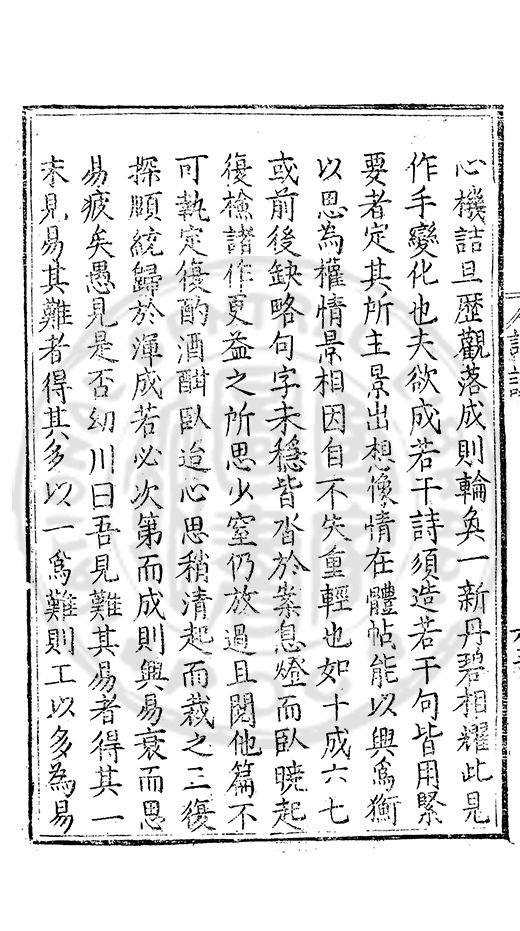 心機詰旦歷觀落成則輪奐一新丹碧相耀此見
作手變化也夫欲成若干詩須造若干句皆用緊
要者定其所主景出想像情在體帖能以興為衡
以思為權情景相因自不失重輕也如十成六七
或前後缺略句字未穩皆沓於案息燈而臥曉起
復檢諸作更益之所思少窒仍放過且閱他篇不
可執定復酌酒酣臥迨心思稍清起而裁之三復
探頤統歸於渾成若必次第而成則興易衰而思
易疲矣愚見是否幼川曰吾見難其易者得其一
未見易其難者得其多以一為難則工以多為易